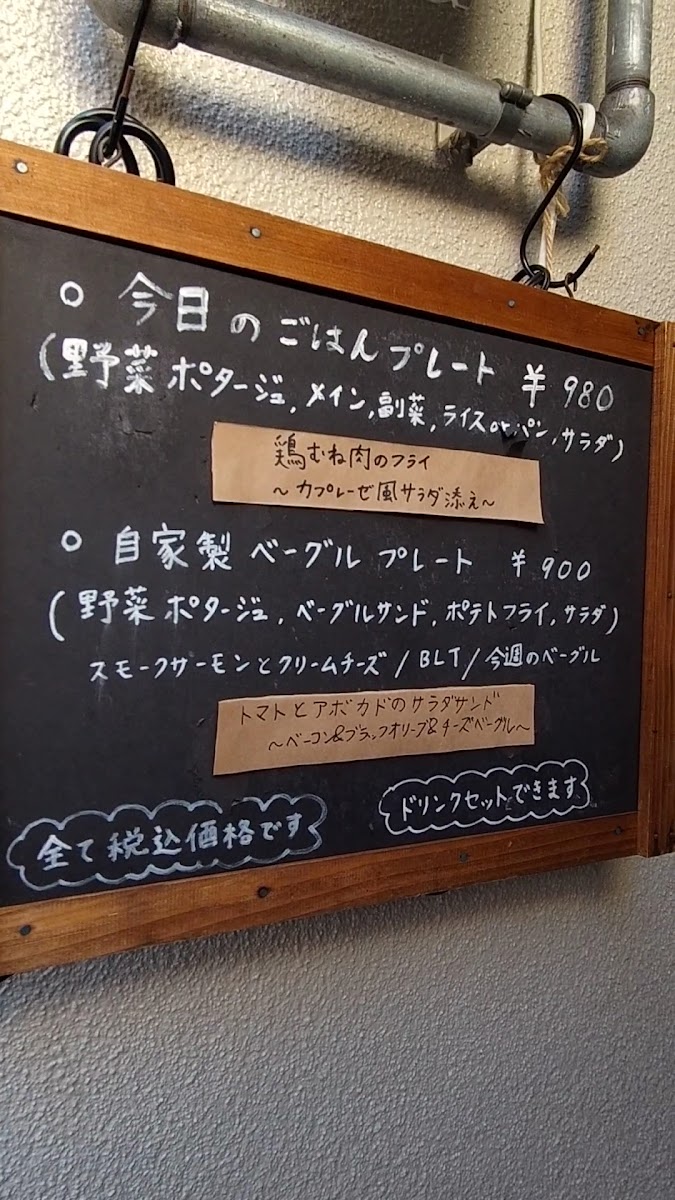 ○ 今日のごはんプレート ¥980
(野菜ポタージュ, メイン, 副菜, ライス or パン, サラダ)
鶏むね肉のフライ
~カプレーゼ風サラダ添え~
○ 自家製ベーグルプレート ¥900
(野菜ポタージュ, ベーグルサンド, ポテトフライ, サラダ)
スモークサーモンとクリームチーズ / BLT / 今週のベーグル
トマトとアボカドのサラダサンド
~ベーコン&ブラックオリーブ&チーズベーグル~
ドリンクセットできます
全て税込価格です